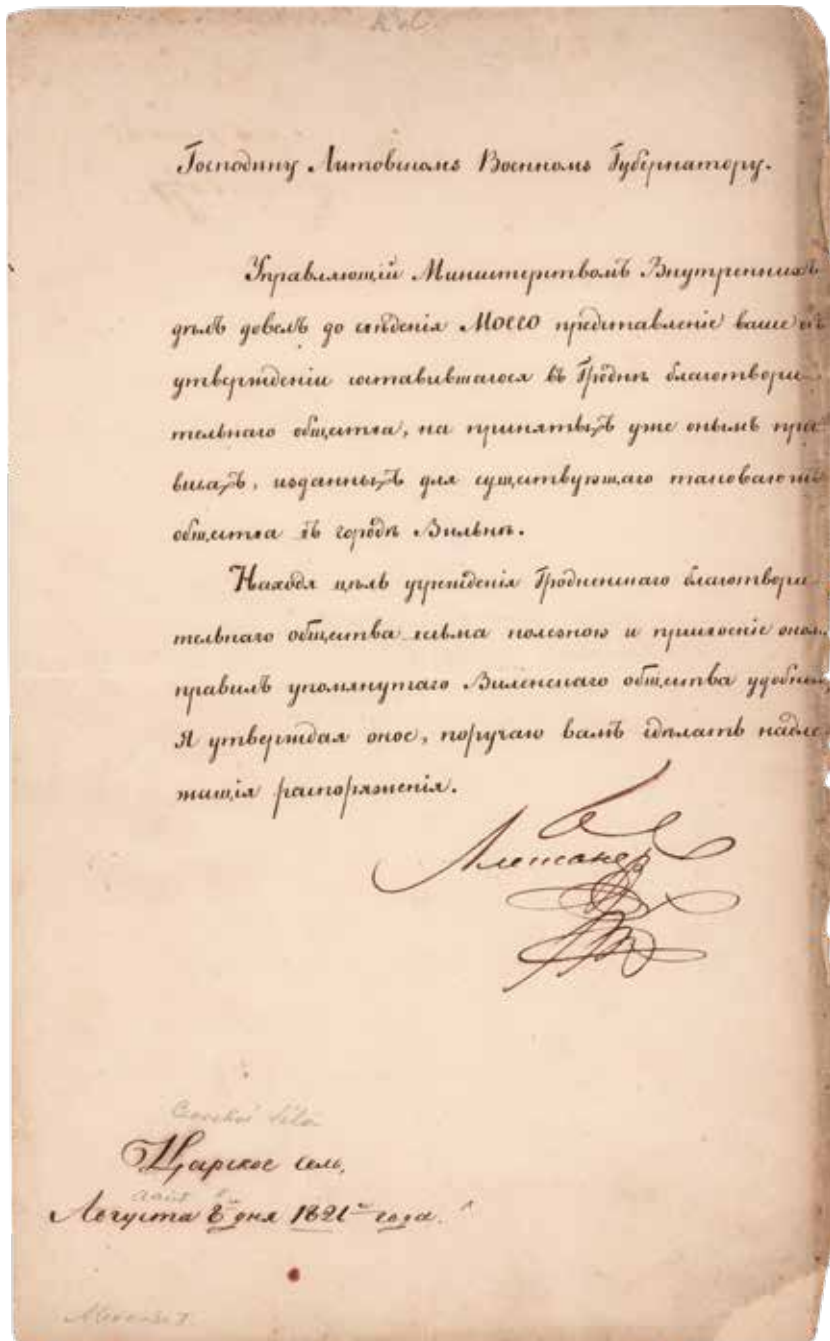 Господину Литовскомъ Военномъ Губернатору.
Управляющій Министерствомъ Внутреннихъ
дѣлъ довелъ до свѣденія Моего представленіе ваше объ
утвержденіи составившагося въ Гроднѣ благотвори-
тельнаго общества, на принятыхъ уже онымъ пра-
вилахъ, изданныхъ для существующаго таковагожъ
общества въ городѣ Вильнѣ.
Находя цѣль учрежденія Гродненскаго благотвори-
тельнаго общества весьма полезною и принятіе оном
правилъ упомянутаго Виленскаго общества удобным,
Я утверждая оное, поручаю вамъ сдѣлать надле-
жащія распоряженія.
Александръ
Царское село,
Августа 8 дня 1821го года.